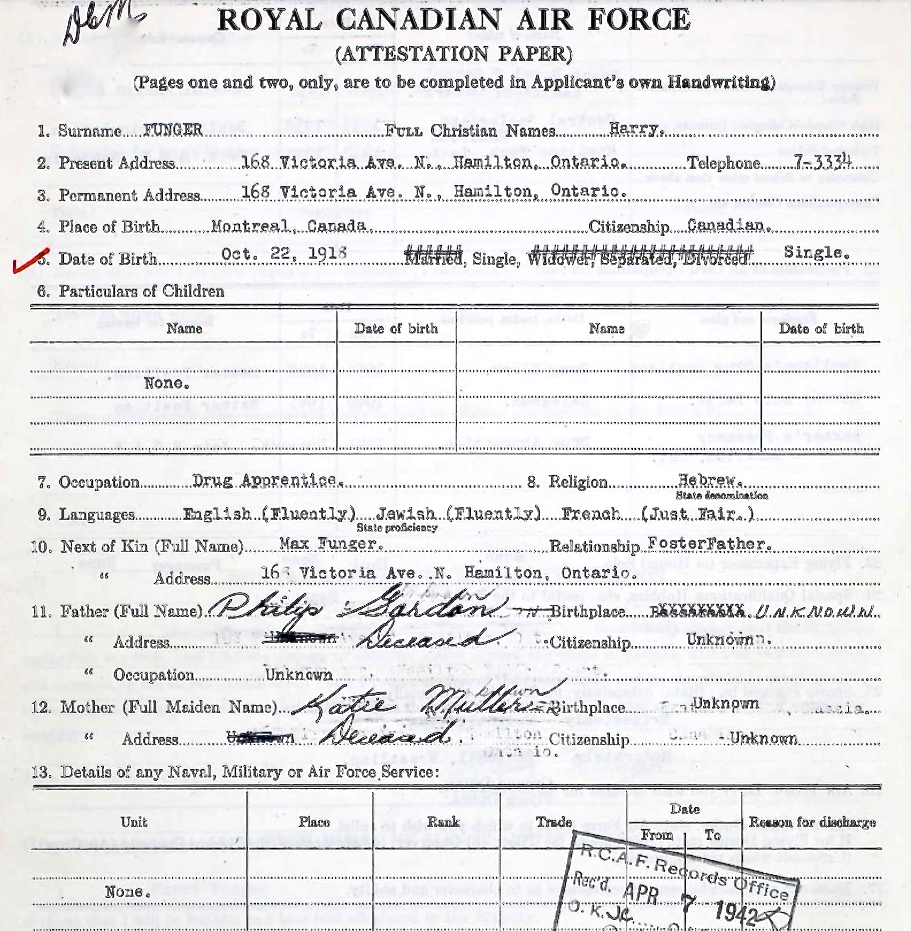 D&M
ROYAL CANADIAN AIR FORCE
(ATTESTATION PAPER)
(Pages one and two, only, are to be completed in Applicant's own Handwriting)
1. Surname FUNGER FULL Christian Names Harry.
2. Present Address 168 Victoria Ave. N., Hamilton, Ontario. Telephone 7-3334
3. Permanent Address 168 Victoria Ave. N., Hamilton, Ontario.
4. Place of Birth Montreal, Canada Citizenship Canadian.
5. Date of Birth Oct. 22, 1918 Married, Single, Widower, Separated, Divorced Single.
6. Particulars of Children
Name Date of birth Name Date of birth
None.
7. Occupation Drug Apprentice. 8. Religion Hebrew.
State denomination
9. Languages English (Fluently) Jewish (Fluently) French (Just Fair.)
State proficiency
10. Next of Kin (Full Name) Max Funger. Relationship FosterFather.
" Address 168 Victoria Ave. N. Hamilton, Ontario.
11. Father (Full Name) Philip Gordon Birthplace UNKNOWN
" Address Unknown Deceased Citizenship Unknown.
" Occupation Unknown
12. Mother (Full Maiden Name) Katie Muller Birthplace Unknown
" Address Unknown Deceased Citizenship Unknown
13. Details of any Naval, Military or Air Force Service:
Unit Place Rank Trade Date Reason for discharge
From To
None.
R.C.A.F. Records Office
Rec'd. APR 7 1942
O.K.